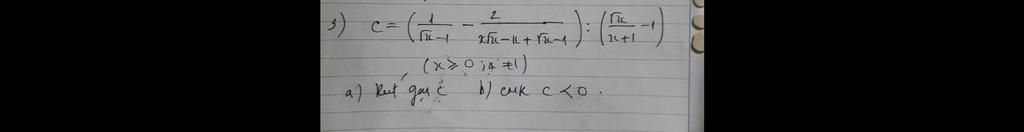 3) C = (1/(√x-1) - 2/(x√x-x+√x-1)) : (√x/(x+1) - 1)
(x ≥ 0 ; x ≠ 1)
a) Rút gọn C b) CMR C < 0.